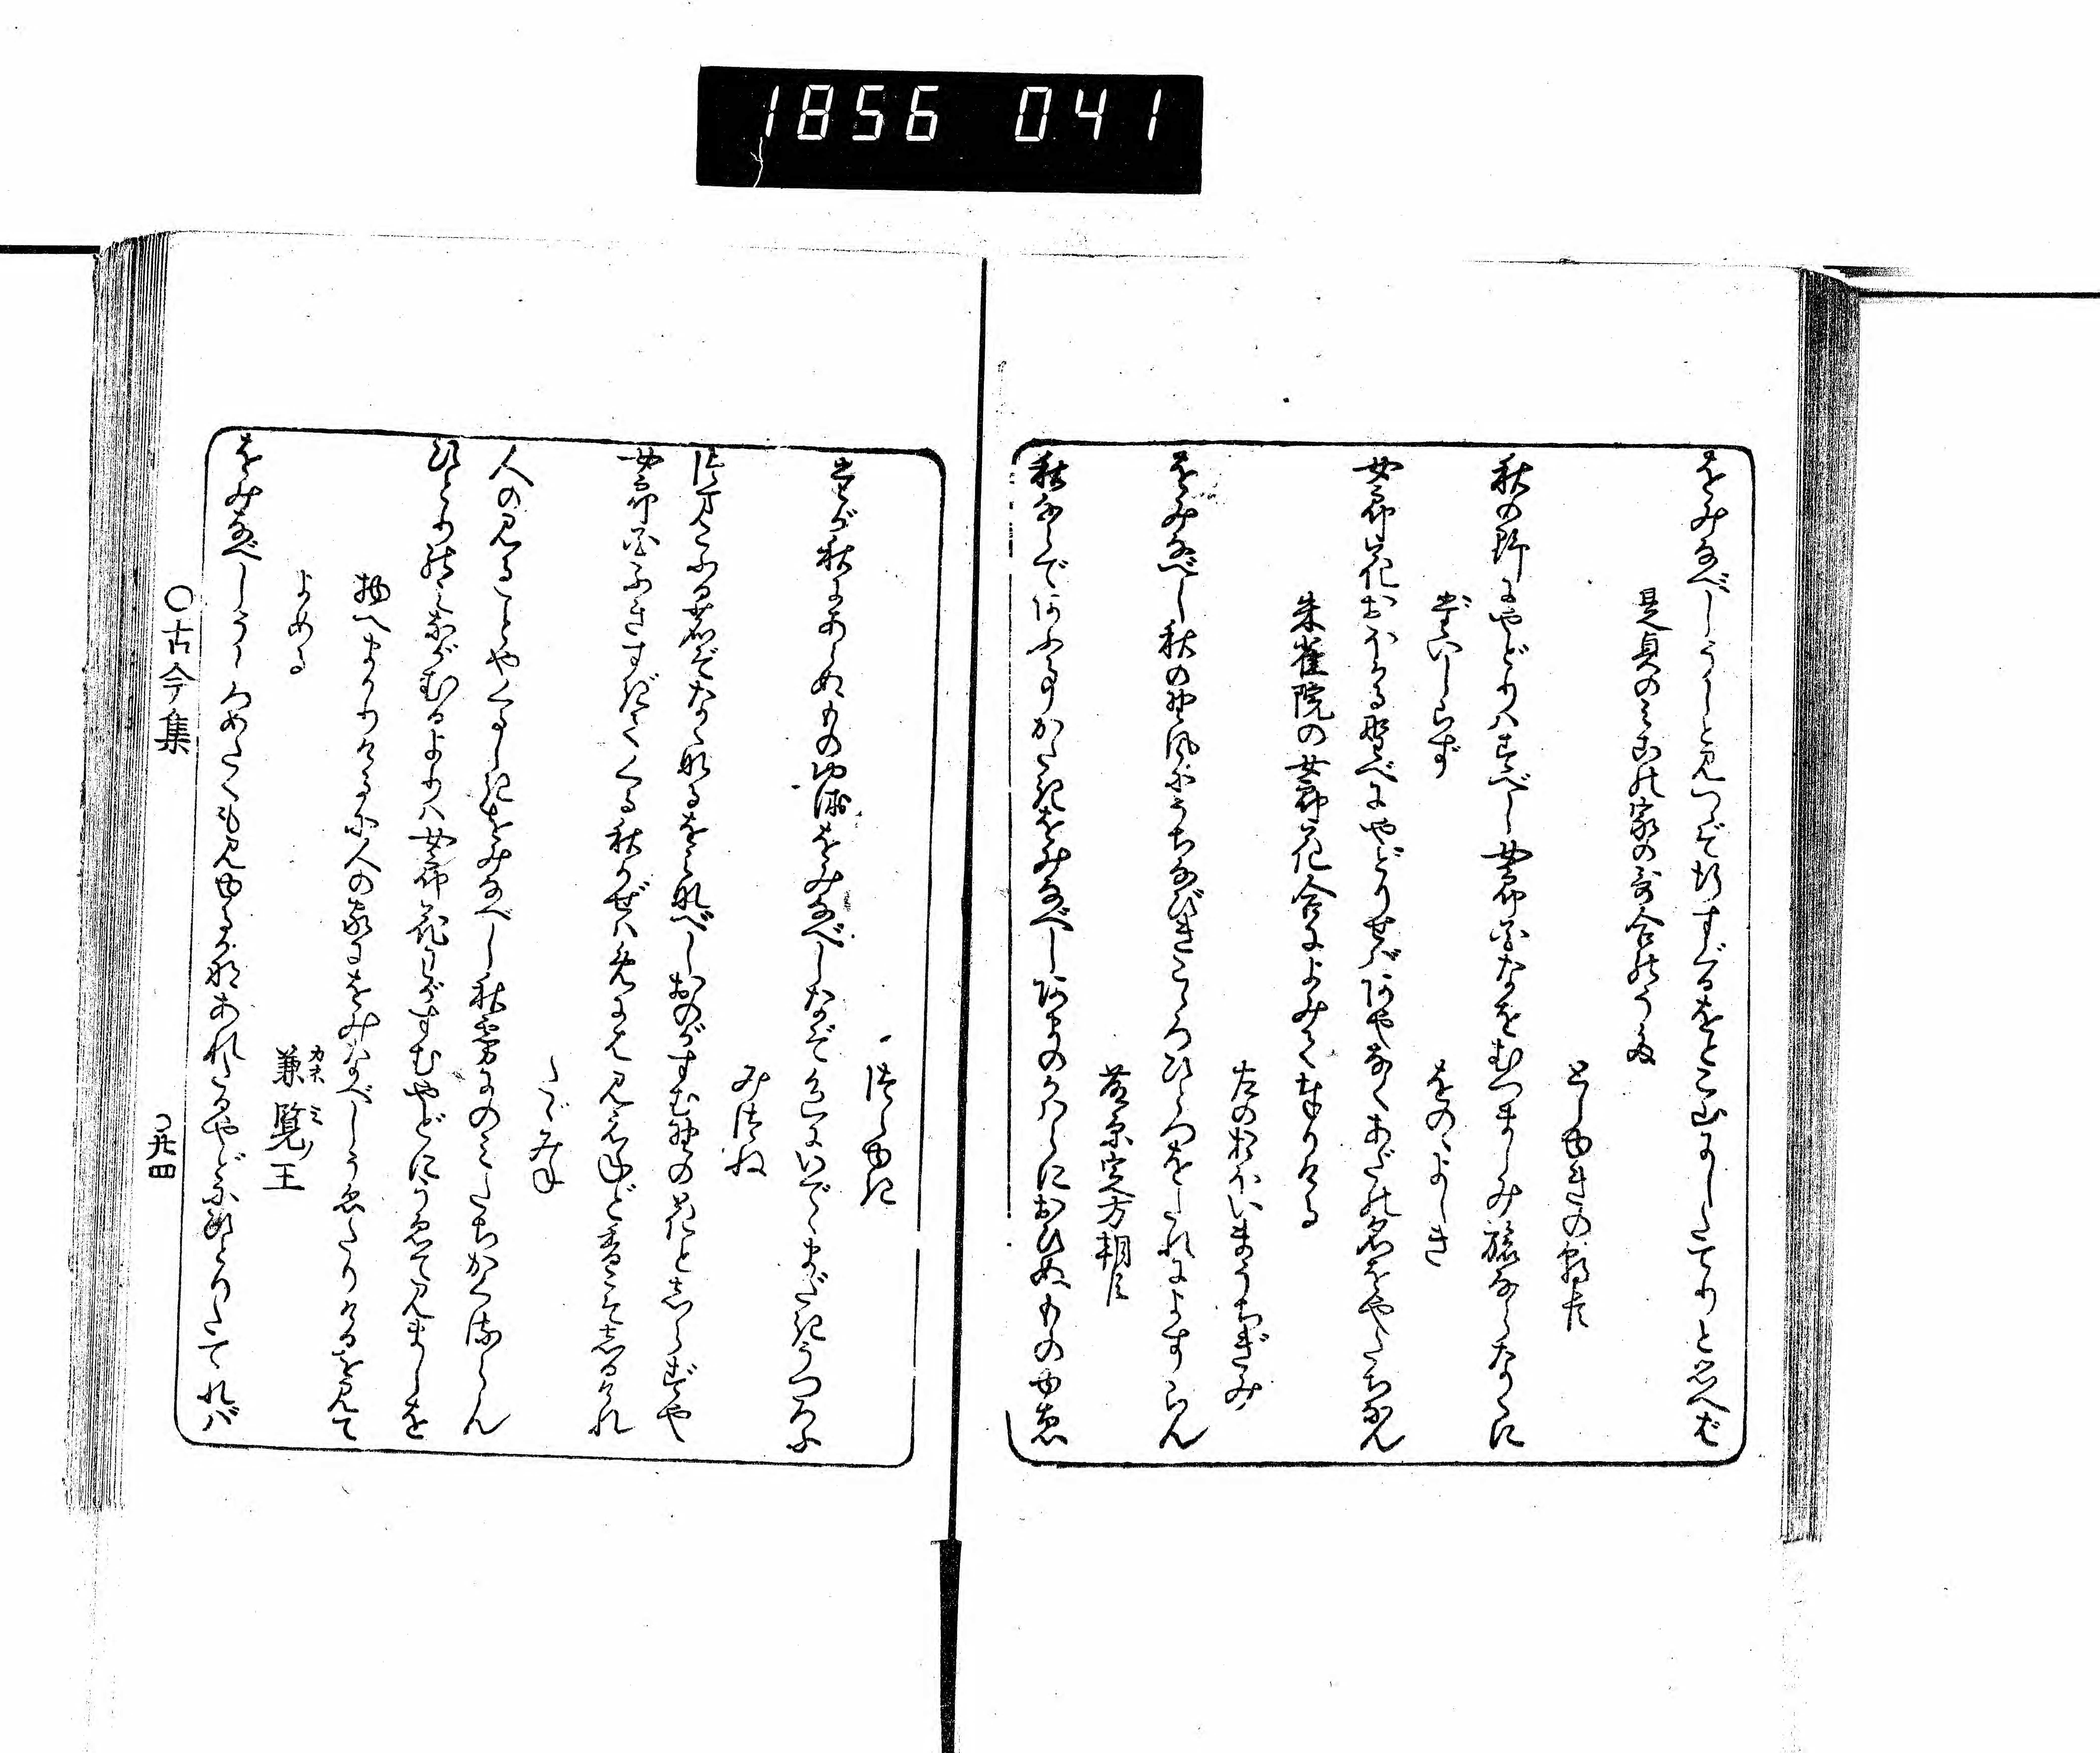 1856 041
をみなべしうしと見つゝぞ行すぐるをとこ山にしたてりと思へば
是貞のみこの家の哥合のうた
としゆきの朝臣
秋の野にやどりハすべし女郎花なをむつましみ旅ならなくに
題しらず
をのゝよし木
女郎花おほかる野べにやどりせばあやなくあだの名をやたちなん
朱雀院の女郎花合によみて奉りける
左のおほいまうちぎみ
をみなべし秋の野風にうちなびきこゝろひとつをたれによすらん
藤原定方朝臣
秋ならであふ事かたきをみなべしあまのかハらにおひぬものゆゑ
つらゆき
たが秋にあらぬものゆゑをみなべしなぞ色にいでゝまだきうつろふ
みつね
つまこふる鹿ぞなくなるをみなべしおのがすむ野の花としらずや
女郎花ふきすぎてくる秋かぜハめにハ見えねど香こそしるけれ
たゞみね
人の見ることやくるしきをみなべし秋霧にのみたちかくるらん
ひとりのみながむるよりハ女郎花わがすむやどにうゑて見ましを
物へまかりけるに人の家にをみなべしうゑたりけるを見て
よめる
兼覧王
カネミノ
をみなべしうしろめたくも見ゆるかなあれたるやどにひとりたてれバ
○古今集